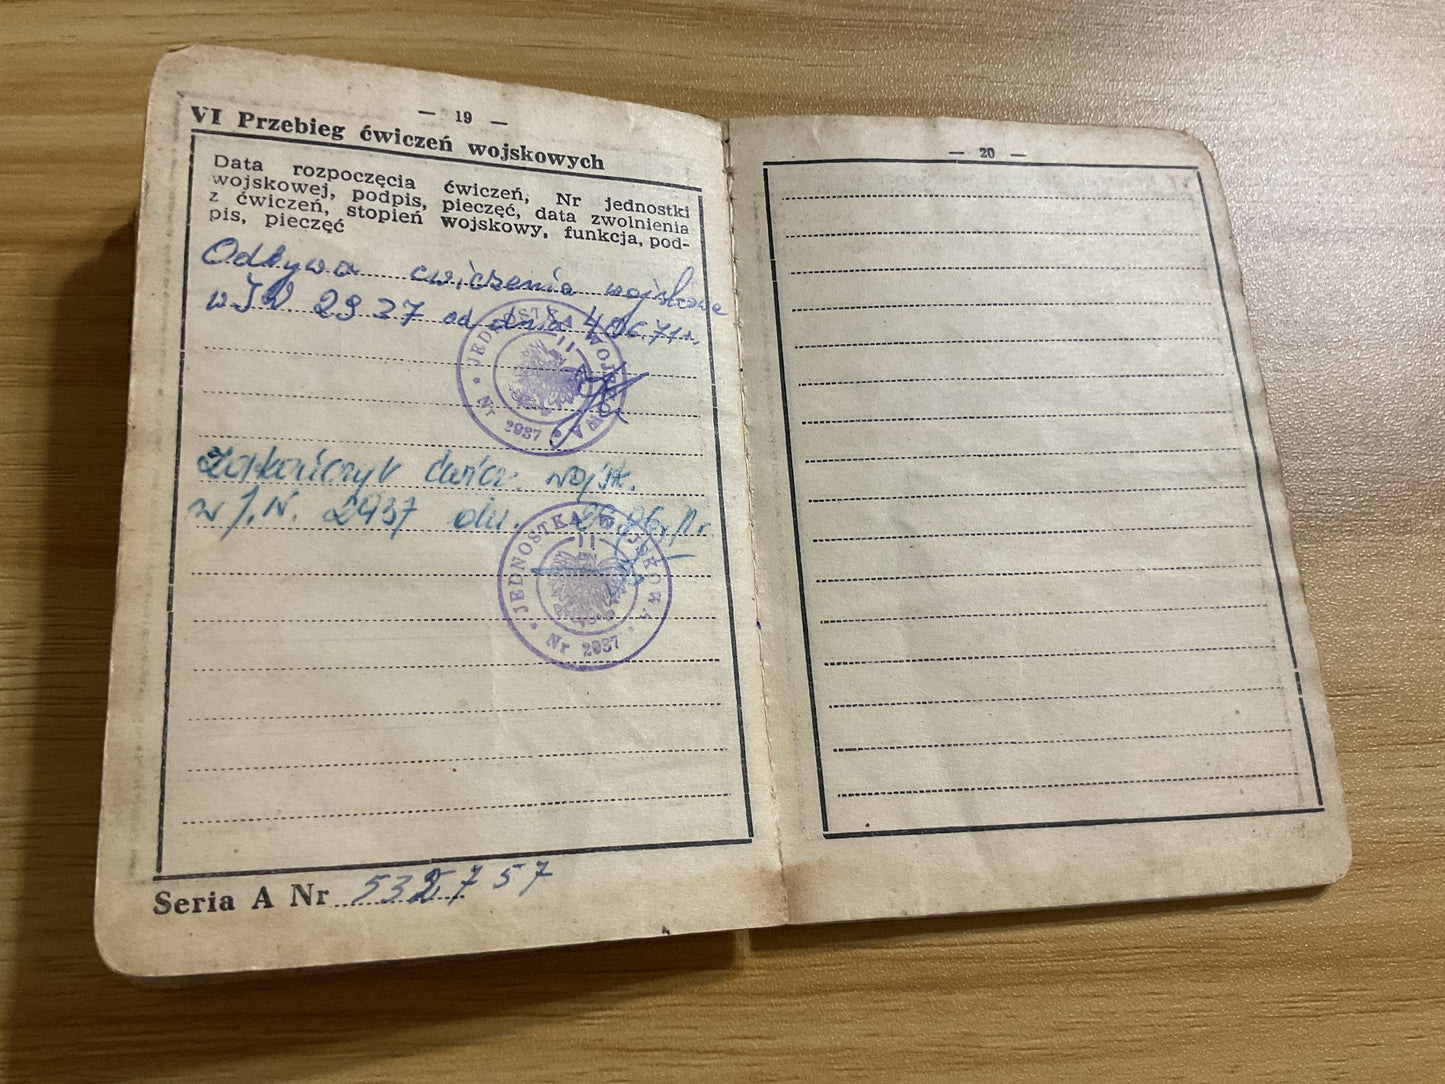 — 19 —
VI Przebieg ćwiczeń wojskowych
Data rozpoczęcia ćwiczeń, Nr jednostki
wojskowej, podpis, pieczęć, data zwolnienia
z ćwiczeń, stopień wojskowy, funkcja, pod-
pis, pieczęć
Odbywa ćwiczenia wojskowe
w J.W. 2937 od dnia
JEDNOSTKA WOJSKOWA
Nr 2937
Zakończył ćwicz. wojsk.
w J.W. 2937 dn.
JEDNOSTKA WOJSKOWA
Nr 2937
Seria A Nr 532757
— 20 —